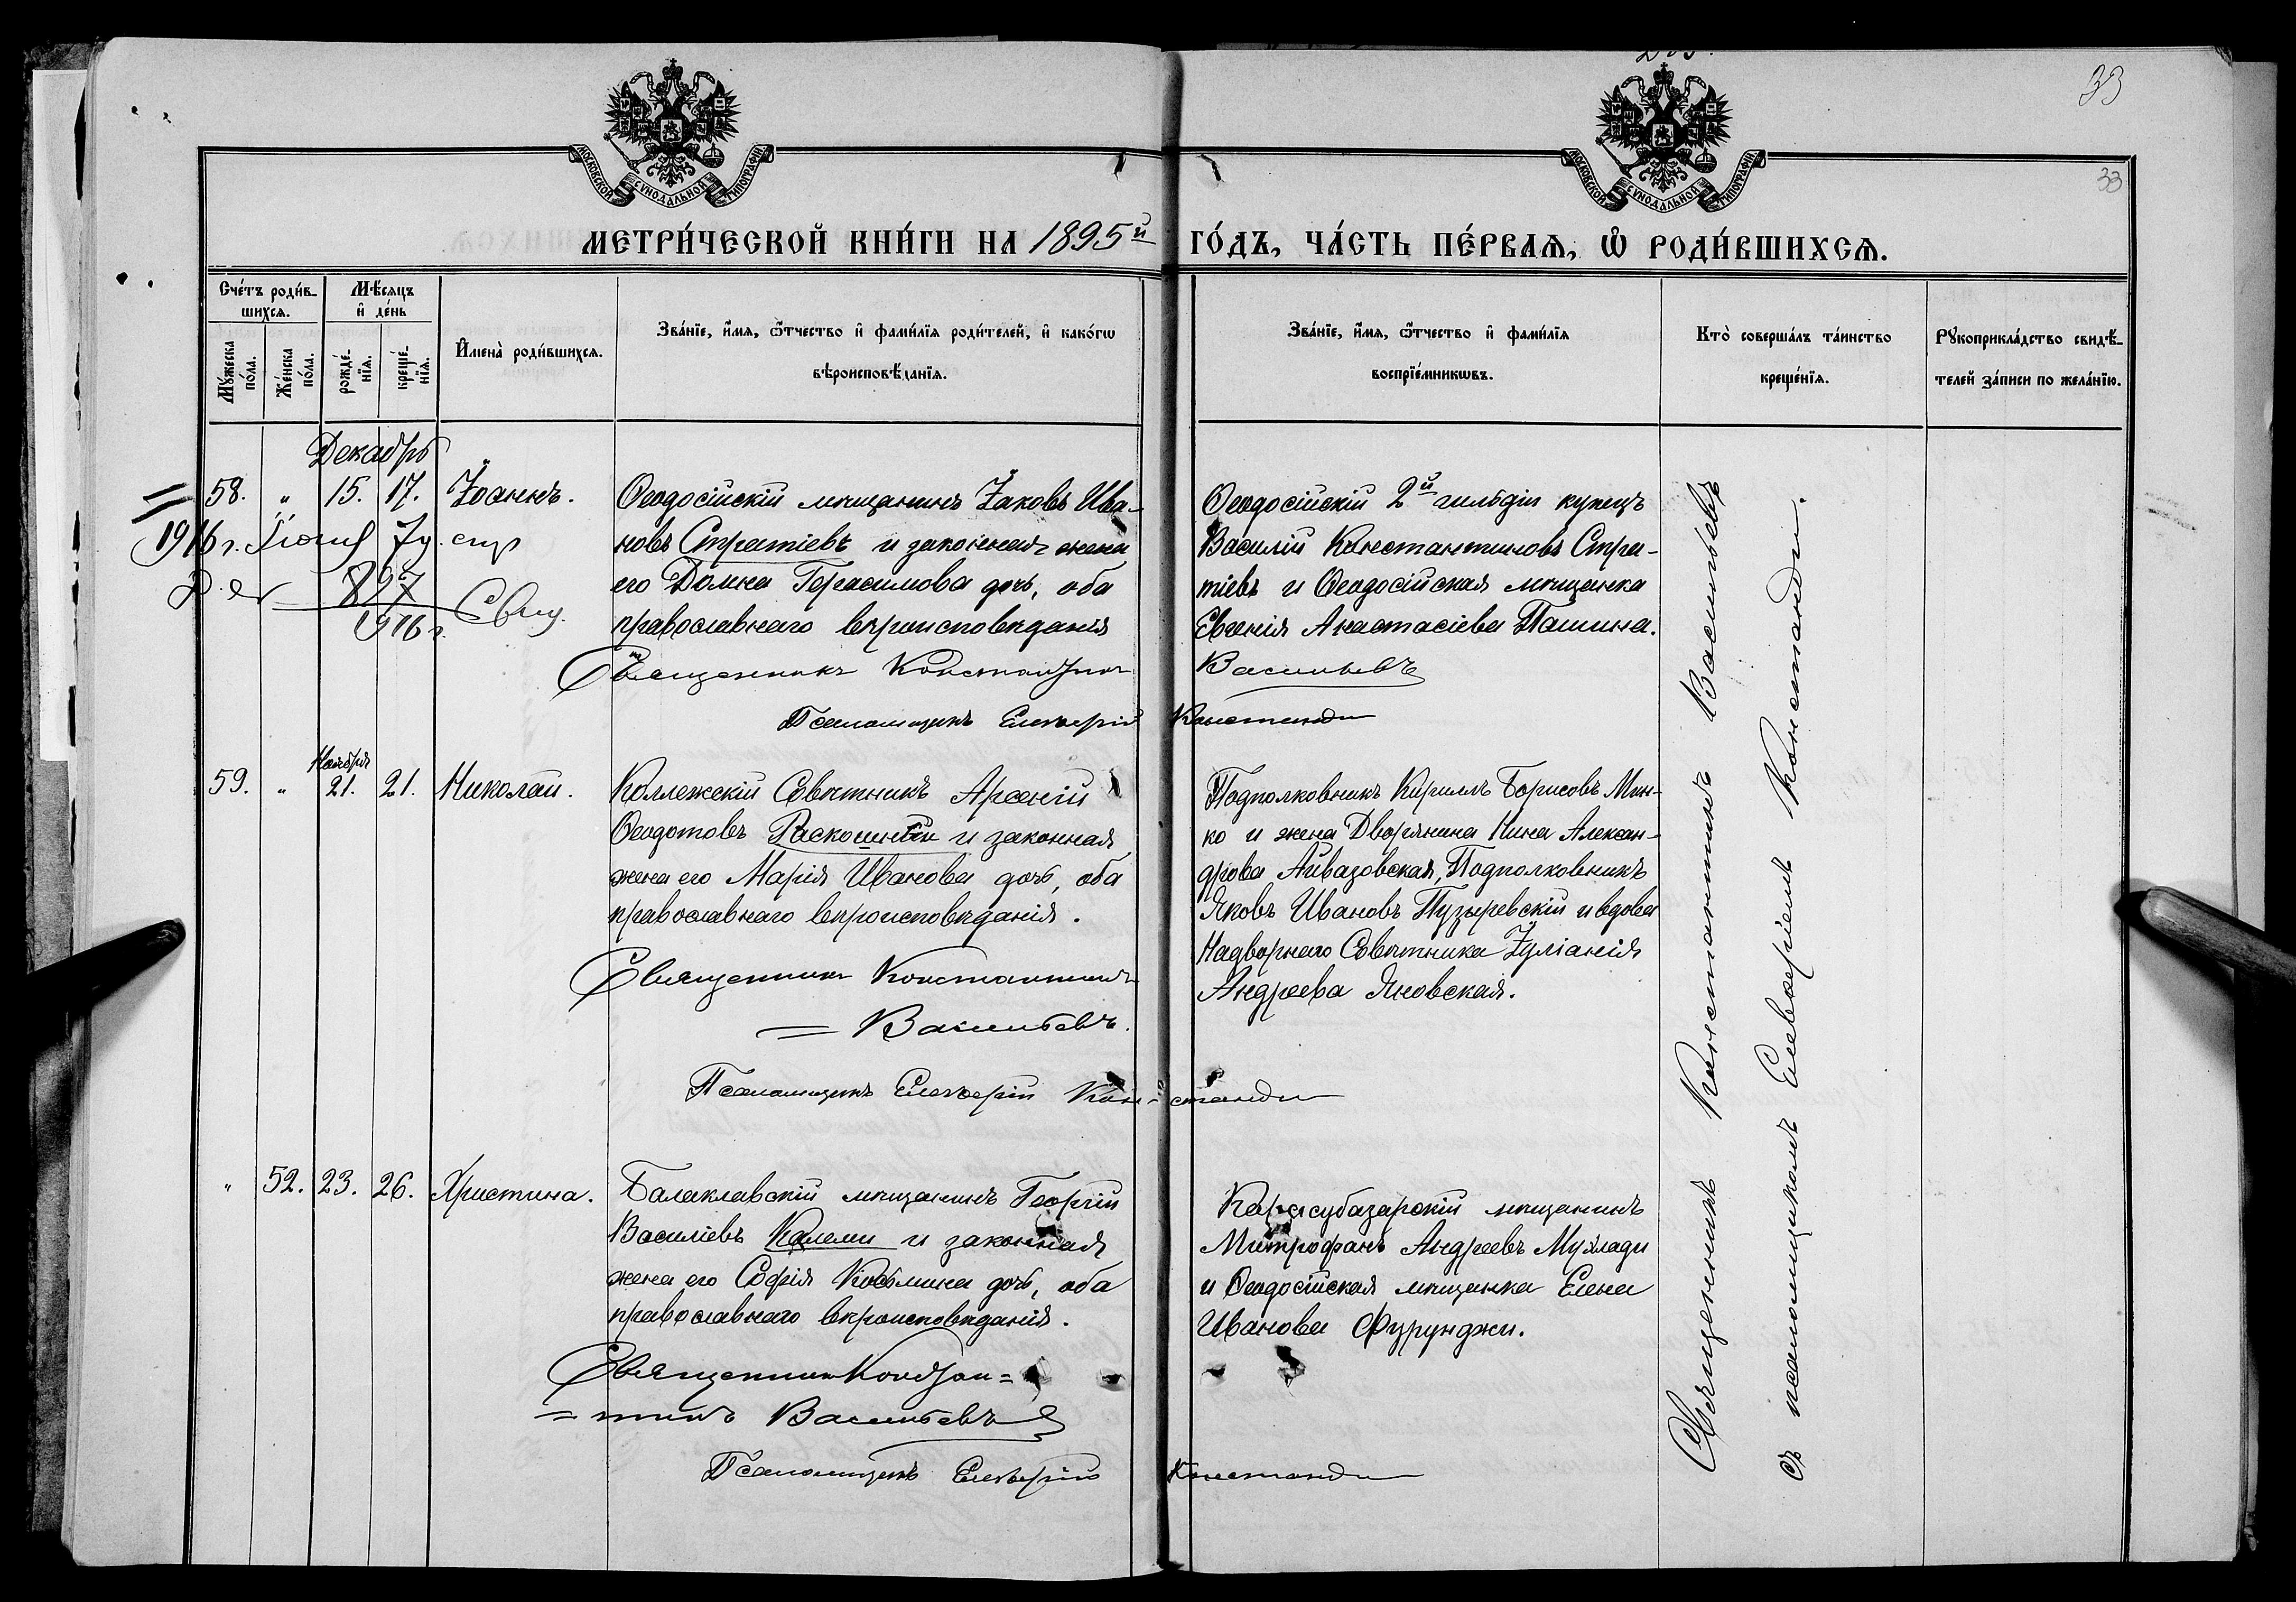 33
33
МОСКОВСКОЙ СѴНОДАЛЬНОЙ ТИПОГРАФІИ
МОСКОВСКОЙ СѴНОДАЛЬНОЙ ТИПОГРАФІИ
МЕТРИ́ЧЕСКОЙ КНИ́ГИ НА 1895й ГО́ДЪ, ЧА́СТЬ ПЕ́РВАѦ, Ѽ РОДИ́ВШИХСѦ.
Сче́тъ роди́в-
шихсѧ.
Мѣ́сѧцъ
и҆ де́нь
Мꙋ́жеска
по́ла.
Же́нска
по́ла.
рожде́-
нїѧ.
креще́-
нїѧ.
И҆мена̀ роди́вшихсѧ.
Зва́нїе, и҆́мѧ, ѻ҆́тчество и҆ фами́лїѧ роди́телей, и҆ како́гѡ
вѣроисповѣ́данїѧ.
Зва́нїе, и҆́мѧ, ѻ҆́тчество и҆ фами́лїѧ
воспрїе́мникѡвъ.
Кто̀ соверша́лъ та́инство
креще́нїѧ.
Рꙋкоприкла́дство свидѣ́-
телей за́писи по жела́нїю.
Декабрь
58. " 15. 17. Іоаннъ.
Ѳеодосійскій мѣщанинъ Іаковъ Ива-
новъ Стратіевъ и законная жена
его Домна Герасимова дочь, оба
православнаго вѣроисповѣданія
Священникъ Константинъ Васильевъ
Псаломщикъ Елевѳерій Констанди
Ѳеодосійскій 2й гильдіи купецъ
Василій Константиновъ Стра-
тіевъ и Ѳеодосійская мѣщанка
Евгенія Анастасіева Пашина.
1916 г.
897
916 г.
Ноября
59. " 21. 21. Николай.
Коллежскій Совѣтникъ Арсеній
Ѳеодотовъ и законная
жена его Марія Иванова дочь, оба
православнаго вѣроисповѣданія.
Священникъ Константинъ
Васильевъ.
Псаломщикъ Елевѳерій Констанди
Подполковникъ Кириллъ Борисовъ Мин-
ко и жена Дворянина Нина Алексан-
дрова Айвазовская, Подполковникъ
Яковъ Ивановъ Пузыревскій и вдова
Надворнаго Совѣтника Іуліанія
Андреева Яновская.
" 52. 23. 26. Христина.
Балаклавскій мѣщанинъ Георгій
Василіевъ Калеми и законная
жена его Софія Косьмина дочь, оба
православнаго вѣроисповѣданія.
Священникъ Констан=
=тинъ Васильевъ
Псаломщикъ Елевѳерій Констанди
Карасубазарскій мѣщанинъ
Митрофанъ Андреевъ Мухлади
и Ѳеодосійская мѣщанка Елена
Иванова Фурунджи.
Священникъ Константинъ Васильевъ
съ псаломщикомъ Елевѳеріемъ Констанди.